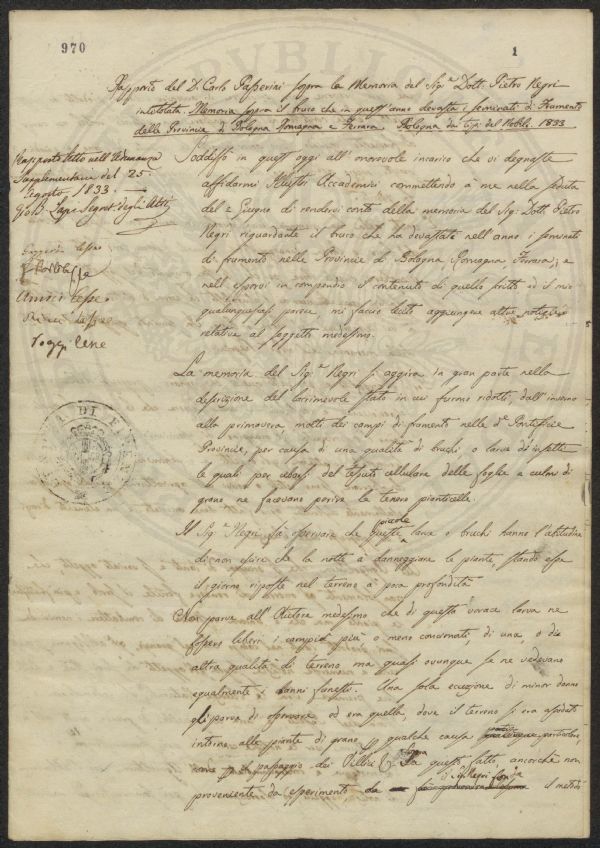 970
1
Rapporto del D. Carlo Passerini sopra la Memoria del Sig.r Dott. Pietro Negri
intitolata. Memoria sopra il bruco che in quest'anno devastò i seminati di Frumento
delle Provincie di Bologna Romagna e Ferrara. Bologna da' tipi del Nobili. 1833
Rapporto letto nell'Adunanza
Supplementaria del 25.
Agosto 1833.
Soddisfò in quest'oggi all'onorevole incarico che vi degnaste
affidarmi Illustri Accademici, commettendo a me nella seduta
del 2 Giugno di rendervi conto della memoria del Sig. Dott. Pietro
Negri riguardante il bruco che ha devastato nell'anno i seminati
di frumento nelle Provincie di Bologna, Romagna Ferrara; e
nell'esporvi in compendio il contenuto di quello scritto ed il mio
qualunquesiasi parere mi faccio lecito aggiungere altre notizie
relative al soggetto medesimo.
La memoria del Sig.r Negri si aggira in gran parte nella
descrizione del lacrimevole stato in cui furono ridotti, dall'inverno
alla primavera, molti dei campi di frumento nelle d.e Pontificie
Provincie, per causa di una qualità di bruchi o larve di insetti
le quali per cibarsi del tessuto cellulare delle foglie e culmi di
grano ne facevano perire le tenere pianticelle.
Il Sig.r Negri fà osservare che queste piccole larve o bruchi hanno l'abitudine
di non escire che la notte a danneggiare le piante, stando esse
il giorno riposte nel terreno a poca profondità.
Non parve all'Autore medesimo che di questa vorace larva ne
fossero liberi i campi più o meno concimati, di una, o di
altra qualità di terreno ma quasi ovunque se ne vedevano
egualmente i danni funesti. Una sola eccezione di minor danno
gli parve di osservare ed era quella, dove il terreno si era assodato
intorno alle piante di grano p qualche causa particolare,
come p il passaggio dei Villici &. Sopra questo fatto, ancorchè non
proveniente da esperimento il Sig. Negri fonda il metodo